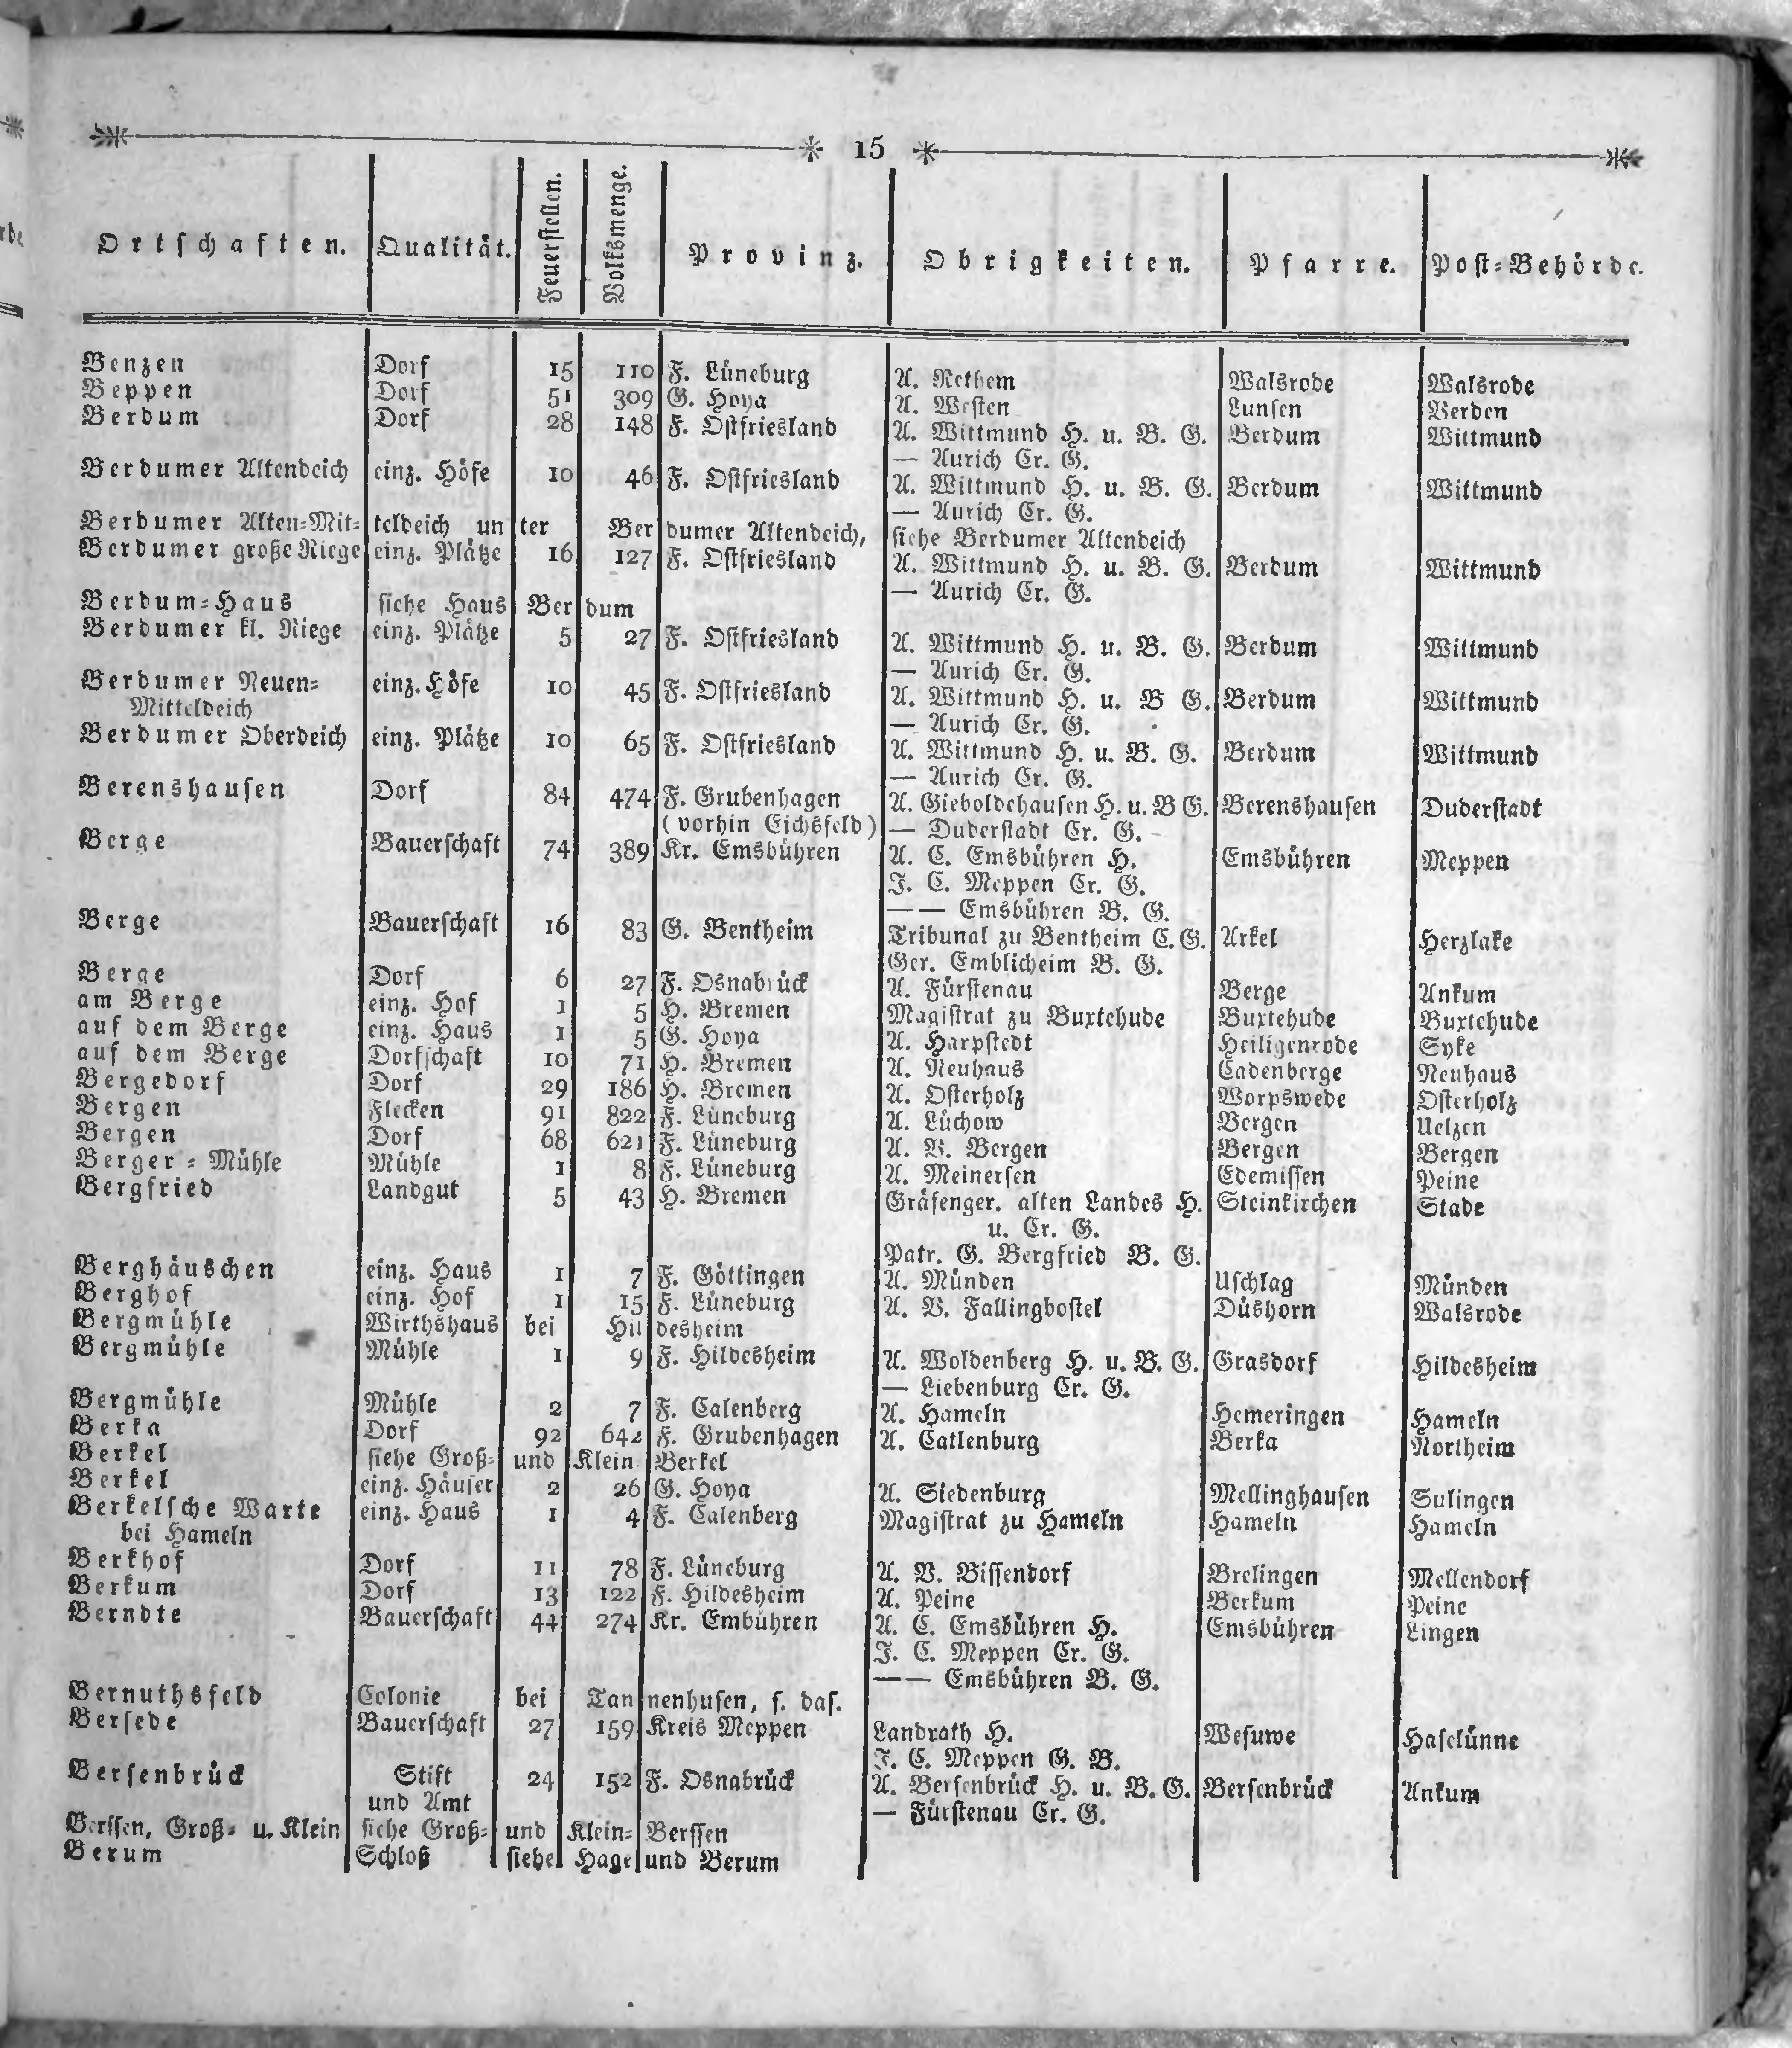 15
Ortschaften. Qualität. Feuerstellen. Volksmenge. Provinz. Obrigkeiten. Pfarre. Post-Behörde.
Benzen Dorf 15 110 F. Lüneburg A. Rethem Walsrode Walsrode
Beppen Dorf 51 309 G. Hoya A. Westen Lunsen Verden
Berdum Dorf 28 148 F. Ostfriesland A. Wittmund H. u. B. G. Berdum Wittmund
— Aurich Cr. G.
Berdumer Altendeich einz. Höfe 10 46 F. Ostfriesland A. Wittmund H. u. B. G. Berdum Wittmund
— Aurich Cr. G.
Berdumer Alten-Mit-teldeich unter Berdumer Altendeich, siehe Berdumer Altendeich
Berdumer große Riege einz. Plätze 16 127 F. Ostfriesland A. Wittmund H. u. B. G. Berdum Wittmund
— Aurich Cr. G.
Berdum-Haus siehe Haus Berdum
Berdumer kl. Riege einz. Plätze 5 27 F. Ostfriesland A. Wittmund H. u. B. G. Berdum Wittmund
— Aurich Cr. G.
Berdumer Neuen- einz. Höfe 10 45 F. Ostfriesland A. Wittmund H. u. B G. Berdum Wittmund
Mitteldeich — Aurich Cr. G.
Berdumer Oberdeich einz. Plätze 10 65 F. Ostfriesland A. Wittmund H. u. B. G. Berdum Wittmund
— Aurich Cr. G.
Berenshausen Dorf 84 474 F. Grubenhagen A. Gieboldehausen H. u. B G. Berenshausen Duderstadt
(vorhin Eichsfeld) — Duderstadt Cr. G.
Berge Bauerschaft 74 389 Kr. Emsbühren A. C. Emsbühren H. Emsbühren Meppen
J. C. Meppen Cr. G.
—— Emsbühren B. G.
Berge Bauerschaft 16 83 G. Bentheim Tribunal zu Bentheim C. G. Arkel Herzlake
Ger. Emblicheim B. G.
Berge Dorf 6 27 F. Osnabrück A. Fürstenau Berge Ankum
am Berge einz. Hof 1 5 H. Bremen Magistrat zu Buxtehude Buxtehude Buxtehude
auf dem Berge einz. Haus 1 5 G. Hoya A. Harpstedt Heiligenrode Syke
auf dem Berge Dorfschaft 10 71 H. Bremen A. Neuhaus Cadenberge Neuhaus
Bergedorf Dorf 29 186 H. Bremen A. Osterholz Worpswede Osterholz
Bergen Flecken 91 822 F. Lüneburg A. Lüchow Bergen Uelzen
Bergen Dorf 68 621 F. Lüneburg A. V. Bergen Bergen Bergen
Berger-Mühle Mühle 1 8 F. Lüneburg A. Meinersen Edemissen Peine
Bergfried Landgut 5 43 H. Bremen Gräfenger. alten Landes H. Steinkirchen Stade
u. Cr. G.
Patr. G. Bergfried B. G.
Berghäuschen einz. Haus 1 7 F. Göttingen A. Münden Uschlag Münden
Berghof einz. Hof 1 15 F. Lüneburg A. V. Fallingbostel Düshorn Walsrode
Bergmühle Wirthshaus bei Hildesheim
Bergmühle Mühle 1 9 F. Hildesheim A. Woldenberg H. u. B. G. Grasdorf Hildesheim
— Liebenburg Cr. G.
Bergmühle Mühle 2 7 F. Calenberg A. Hameln Hemeringen Hameln
Berka Dorf 92 642 F. Grubenhagen A. Catlenburg Berka Northeim
Berkel siehe Groß- und Klein Berkel
Berkel einz. Häuser 2 26 G. Hoya A. Siedenburg Mellinghausen Sulingen
Berkelsche Warte einz. Haus 1 4 F. Calenberg Magistrat zu Hameln Hameln Hameln
bei Hameln
Berkhof Dorf 11 78 F. Lüneburg A. V. Bissendorf Brelingen Mellendorf
Berkum Dorf 13 122 F. Hildesheim A. Peine Berkum Peine
Berndte Bauerschaft 44 274 Kr. Embühren A. C. Emsbühren H. Emsbühren Lingen
J. C. Meppen Cr. G.
—— Emsbühren B. G.
Bernuthsfeld Colonie bei Tannenhusen, s. das.
Bersede Bauerschaft 27 159 Kreis Meppen Landrath H. Wesuwe Haselünne
J. C. Meppen G. B.
Bersenbrück Stift 24 152 F. Osnabrück A. Bersenbrück H. u. B. G. Bersenbrück Ankum
und Amt — Fürstenau Cr. G.
Berssen, Groß- u. Klein siehe Groß- und Klein-Berssen
Berum Schloß siehe Hage und Berum